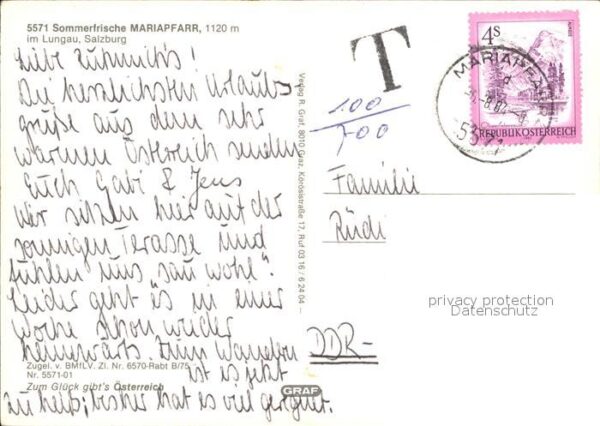 5571 Sommerfrische MARIAPFARR, 1120 m
im Lungau, Salzburg
Liebe
Die herzlichsten Urlaubs-
grüße aus dem sehr
warmen Österreich senden
Euch Gabi & Jens
Wir sitzen hier auf der
sonnigen Terasse und
fühlen uns "sau wohl".
Leider geht es in einer
Woche schon wieder
heimwärts. Zum Wandern
ist es jetzt
zu heiß; bisher hat es viel geregnet.
Zugel. v. BMfLV. Zl. Nr. 6570-Rabt B/75
Nr. 5571-01
Zum Glück gibt's Österreich
Verlag R. Graf, 8010 Graz, Körösistraße 17, Ruf 03 16 / 6 24 04
GRAF
T
100
700
4S
ALMSEE
REPUBLIK ÖSTERREICH
MARIAPFARR
5571
Familie
Rüdi
DDR-
privacy protection
Datenschutz